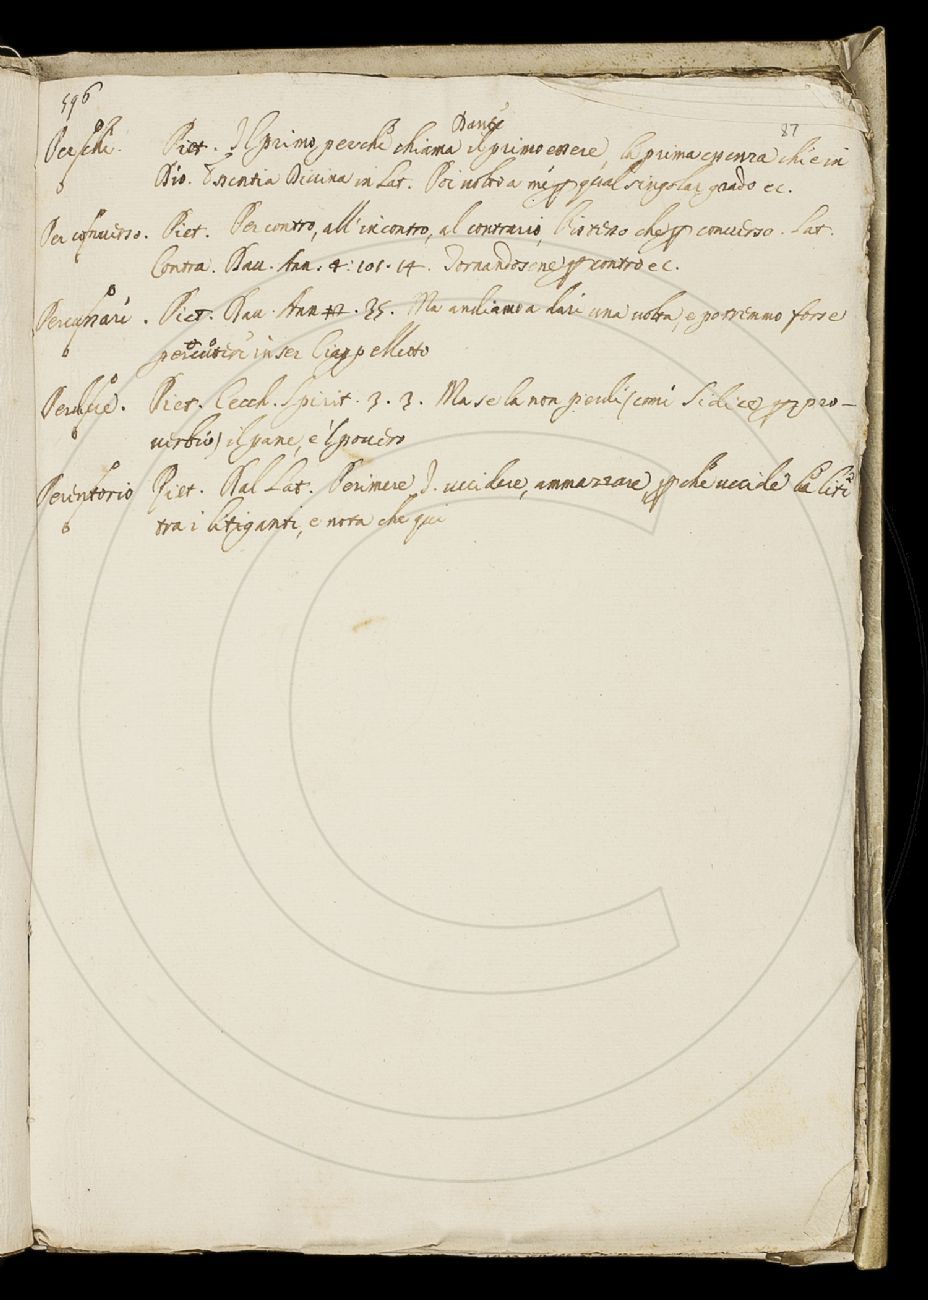 596
87
Dante
Perché. Piet. Il primo perché chiama il primo essere, la prima essenza ch'è in
Dio. Essentia Divina in Lat. Poi nobil a
qual singolar grado ec.
Per converso. Piet. Per contro, all'incontro, al contrario, che conuerso. Lat.
Contra. Dau. Ann. 4. 101. 14. Tornandosene contro ec.
Piet. Dau. Ann. 35. Ma andiamo a dare una uolta, e potremmo forse
percuotere in ser Ciappelletto
Piet. Cecch. Spirit. 3. 3. Ma se la non perde (come si dice pro-
uerbio) il pane, e 'l pouero
Perentorio Piet. Dal Lat. Perimere uccidere, ammazzare che uccide la lite
tra i litiganti, e nota che qui